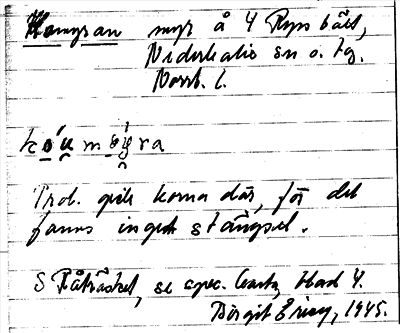 Komyran myr å 4 Rijsbält,
Nederkalix sn o. tg.
Norrb. l.
kóu mýra
Trol. gick korna där, för det
fanns inget stängsel.
S Råträsket, se spec. karta, blad 4.
Birgit Ericz, 1945.